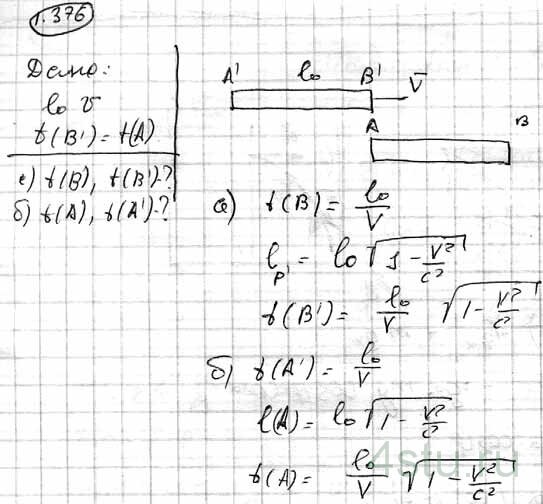 1.376
Дано:
l₀ v
t(B') = t(A)
а) t(B), t(B') - ?
б) t(A), t(A') - ?
A' l₀ B' V
A B
а) t(B) = l₀/V
l_p' = l₀ √(1 - V²/c²)
t(B') = l₀/V √(1 - V²/c²)
б) t(A') = l₀/V
l(A) = l₀ √(1 - V²/c²)
t(A) = l₀/V √(1 - V²/c²)
4stu.ru